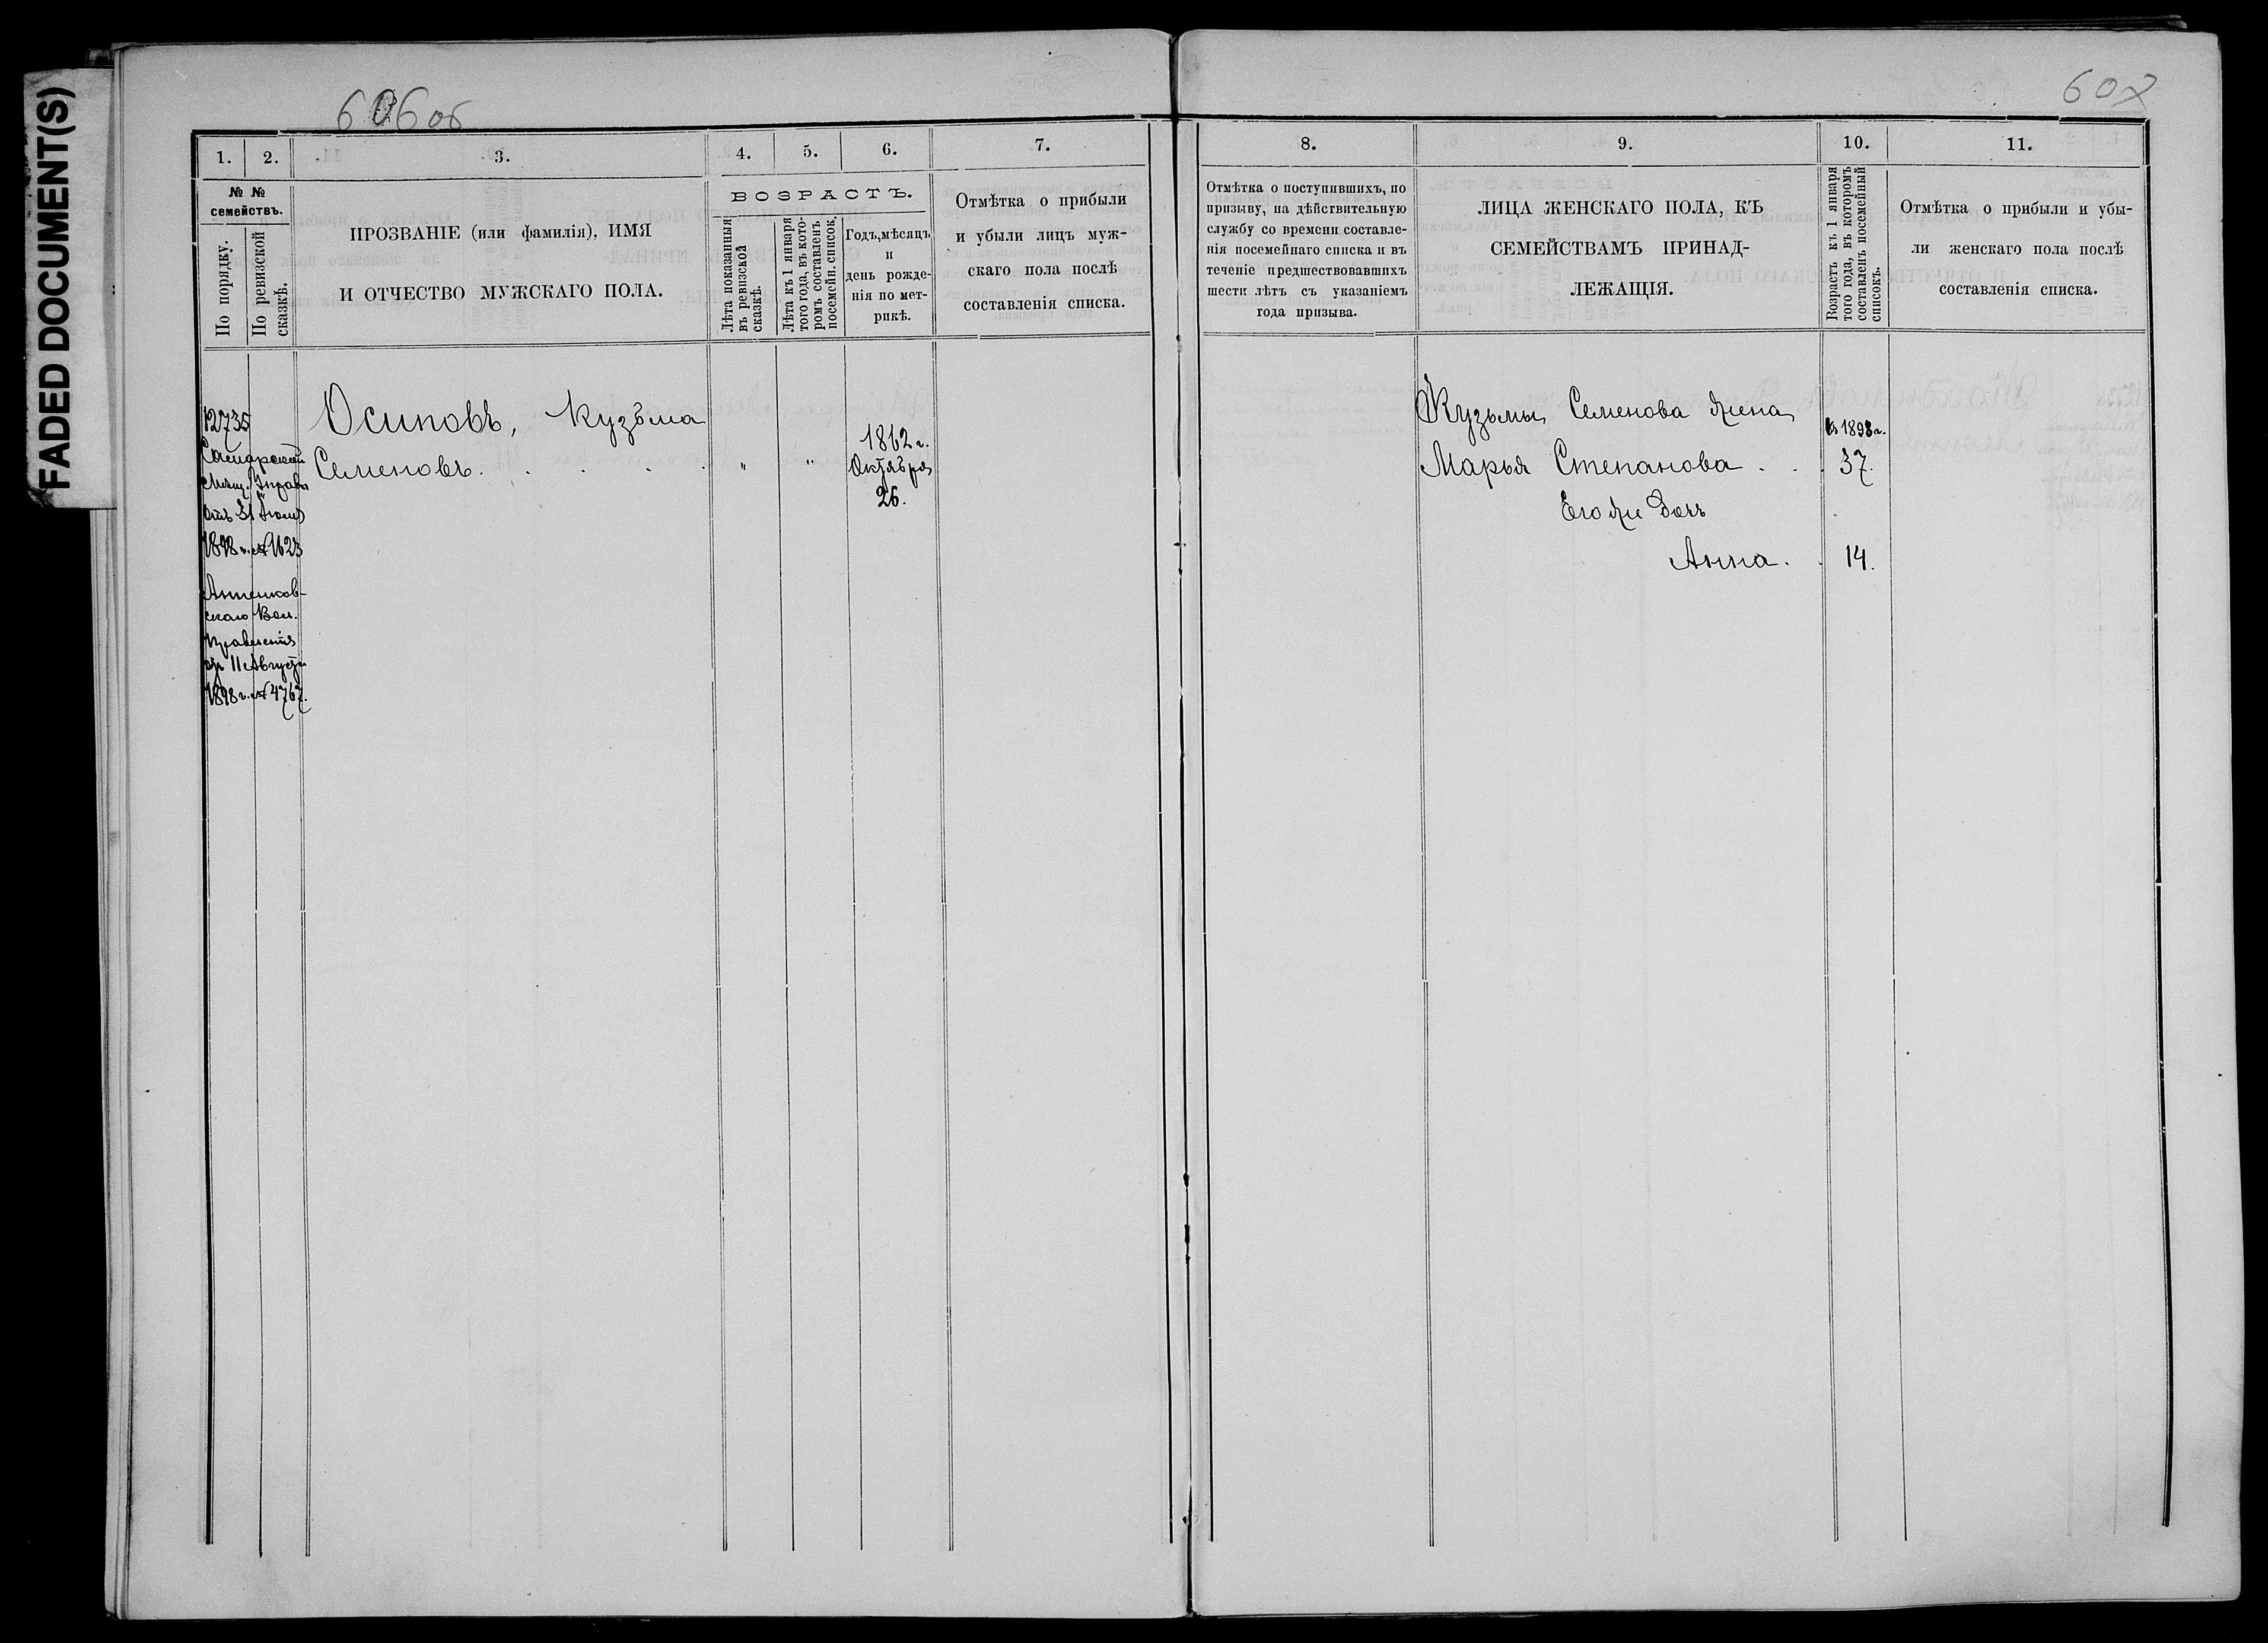 FADED DOCUMENT(S)
606об
1.
2.
3.
4.
5.
6.
7.
№ №
семействъ.
По порядку.
По ревизской
сказкѣ.
ПРОЗВАНІЕ (или фамилія), ИМЯ
И ОТЧЕСТВО МУЖСКАГО ПОЛА.
ВОЗРАСТЪ.
Лѣта показанныя
въ ревизской
сказкѣ.
Лѣта къ 1 января
того года, въ кото-
ромъ составленъ
посемейн. список.
Годъ, мѣсяцъ
и
день рожде-
нія по мет-
рикѣ.
Отмѣтка о прибыли
и убыли лицъ муж-
скаго пола послѣ
составленія списка.
12735
Самарской
Мѣщ. Управы
отъ 31 Іюля
1898 г. № 1623
Анненков-
скаго Вол.
Правленія
отъ 11 Августа
1898 г. № 4767.
Осиповъ, Кузьма
Семеновъ. . . . .
"
"
1862 г.
Октября
26.
607
8.
9.
10.
11.
Отмѣтка о поступившихъ, по
призыву, на дѣйствительную
службу со времени составле-
нія посемейнаго списка и въ
теченіе предшествовавшихъ
шести лѣтъ съ указаніемъ
года призыва.
ЛИЦА ЖЕНСКАГО ПОЛА, КЪ
СЕМЕЙСТВАМЪ ПРИНАД-
ЛЕЖАЩІЯ.
Возрастъ къ 1 января
того года, въ которомъ
составленъ посемейный
списокъ.
Отмѣтка о прибыли и убы-
ли женскаго пола послѣ
составленія списка.
Кузьмы Семенова жена
Марья Степанова . .
Его же дочь
Анна. .
въ 1898 г.
37.
14.